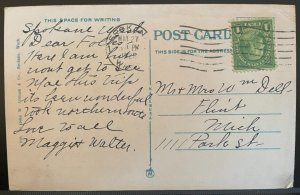 THIS SPACE FOR WRITING
POST CARD
THIS SIDE IS FOR THE ADDRESS
Spokane Wash
Dear Folks
Here I am but
wont get to see
Mae this trip
its been wonderful
took northern route
Love to all
Maggie + Walter.
Mr + Mrs Wm Dell
Flint
Mich
1111 Park St